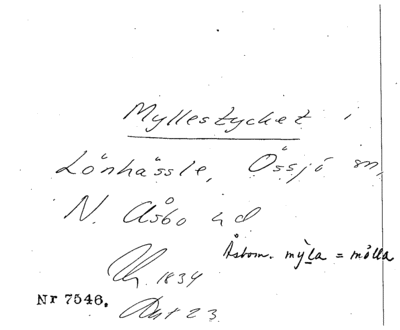 Myllestycket i
Lönhässle, Össjö sn,
N. Åsbo hd
Åsbom. mỳla = mölla
1834
Nr 7546.
Akt 23